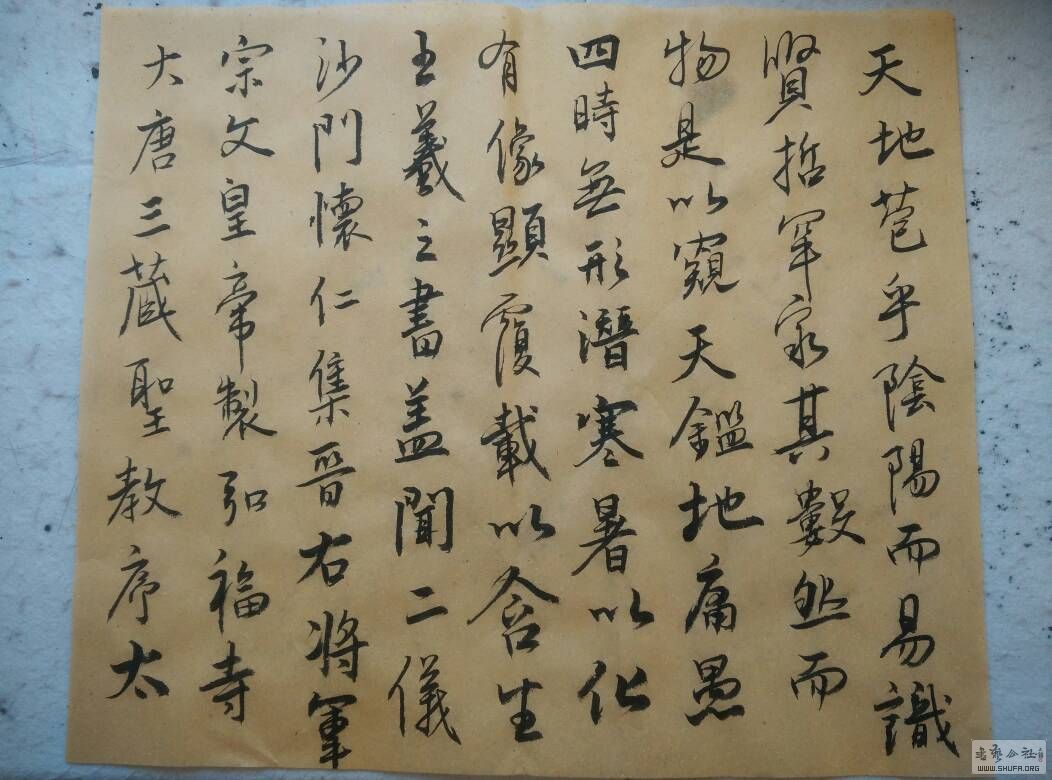 大唐三藏聖教序太
宗文皇帝製弘福寺
沙門懷仁集晉右將軍
王羲之書盖聞二儀
有像顯覆載以含生
四時無形潛寒暑以化
物是以窺天鑑地庸愚
賢哲罕窮其數然而
天地苞乎陰陽而易識
书艺公社
WWW.SHUFA.ORG